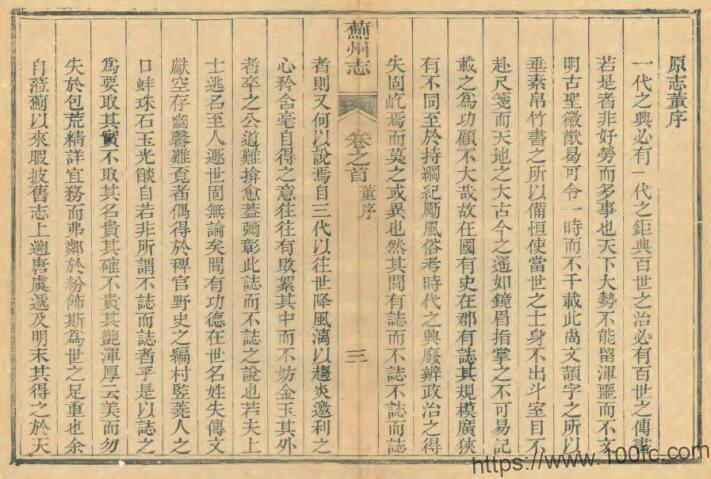 原志董序
一代之興必有一代之鉅典百世之治必有百世之傳書
若是者非好勞而多事也天下大勢不能留渾噩而不文
明古聖徽猷曷可令一時而不千載此尚文頡字之所以
垂素帛竹書之所以備恒使當世之士身不出斗室目不
赴尺箋而天地之大古今之遥如鏡眉指掌之不可易記
載之為功顧不大哉故在國有史在郡有誌其規模廣狹
有不同至於持綱紀勵風俗考時代之興廢辨政治之得
失固屹焉而莫之或異也然其間有誌而不誌不誌而誌
薊州志 卷之首 董序 三
者則又何以說焉自三代以往世降風漓以趨炎邀利之
心矜含毫自得之意往往有敗絮其中而不妨金玉其外
者卒之公道難揜愈蓋彌彰此誌而不誌之說也若夫上
士逃名至人遯世固無論矣間有功德在世名姓失傳文
獻空存幽馨難覔者偶得於稗官野史之編村豎蕘人之
口蚌珠石玉光燄自若非所謂不誌而誌者乎是以誌之
為要取其實不取其名貴其確不貴其艷渾厚云美而勿
失於包荒精詳宜務而弗鄰於粉飾斯為世之足重也余
自蒞薊以來暇披舊志上遡唐虞遞及明末其得之於天
https://www.100fc.com